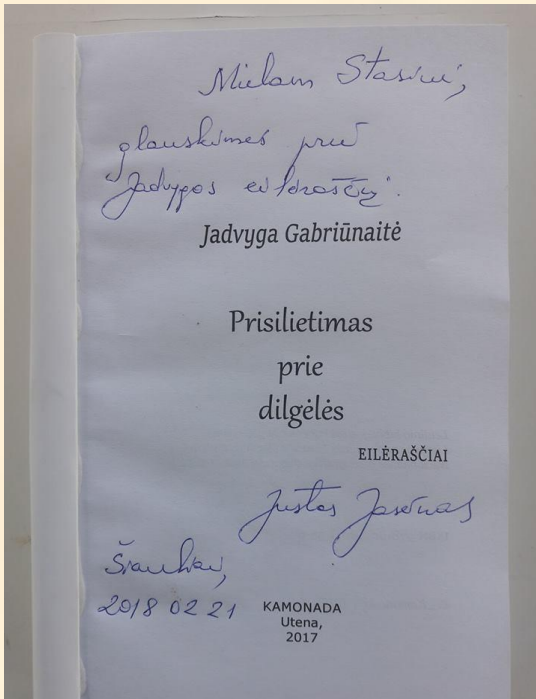 Mielam Stasiui,
glauskimės prie
"Jadvygos eilėraščių".
Jadvyga Gabriūnaitė
Prisilietimas
prie
dilgėlės
EILĖRAŠČIAI
Justas Jasėnas
Šiauliai,
2018 02 21
KAMONADA
Utena,
2017